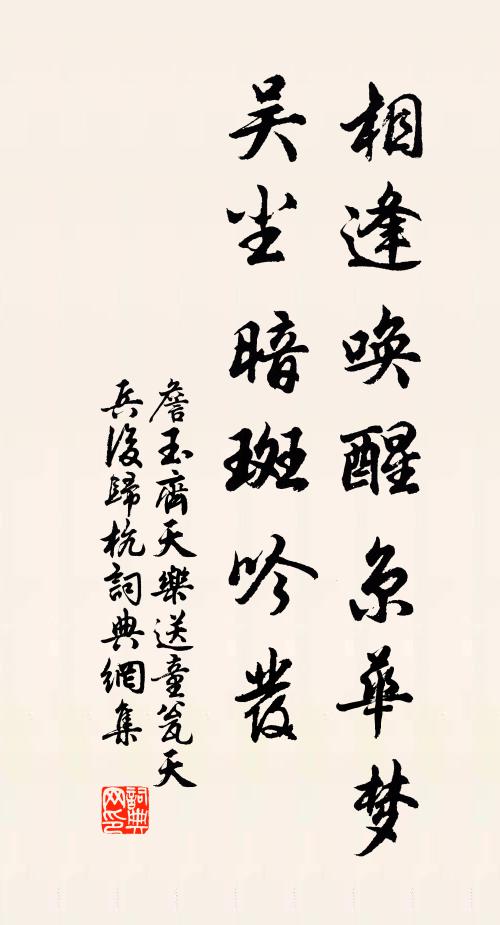 相逢唤醒京華梦
吴尘暗斑吟发
詹玉齊天樂送童瓮天
兵後歸杭詞典網集
詞典网印